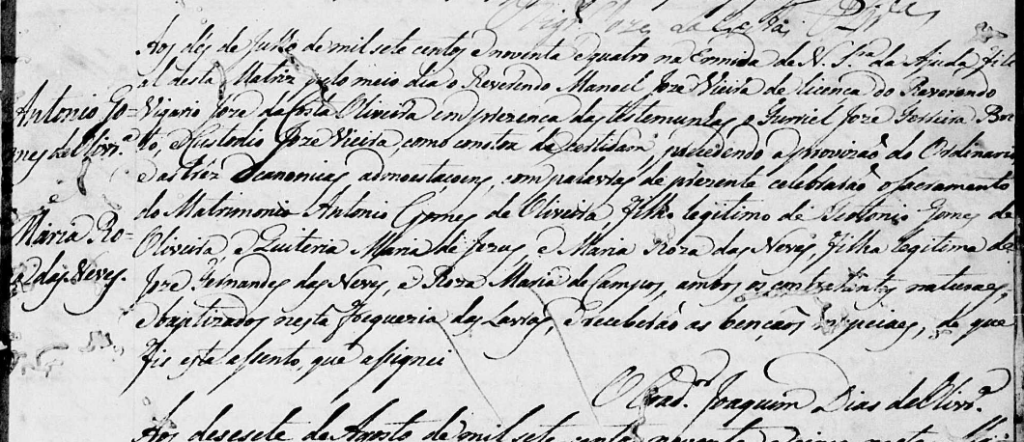 Aos dés de Julho de mil sete centos e noventa e quatro na Ermida de N. Srª da Ajuda, fili
al desta Matriz pelo meio dia o Reverendo Manoel Jozé Vieira de licença do Reverendo
Antonio Go=
Vigario Joze da Costa Oliveira em prezença das testemunhas o Furriel Joze Ferreira Bor
mes de Olivrª
to, e Custodio Joze Vieira, como consta da certidaõ, precedendo a provizaõ do Ordinario
e as trez Canonicas admoestaçoens, com palavras de prezente celebraraõ o sacramento
e
do Matrimonio Antonio Gomes de Oliveira, filho legitimo de Teotonio Gomes de
Maria Ro=
Oliveira e Quiteria Maria de Jezus, e Maria Roza das Neves, filha legitima de
za das Neves.
Joze Fernandes das Neves, e Roza Maria de Campos, ambos os contrahentes naturaes,
e baptizados nesta freguezia das Lavras, e receberaõ as bençaõs nupciaes, de que
fis este assento, que assignei
O Coador Joaquim Dias de Olivrª
Aos desesete de Agosto de mil sete centos noventa e